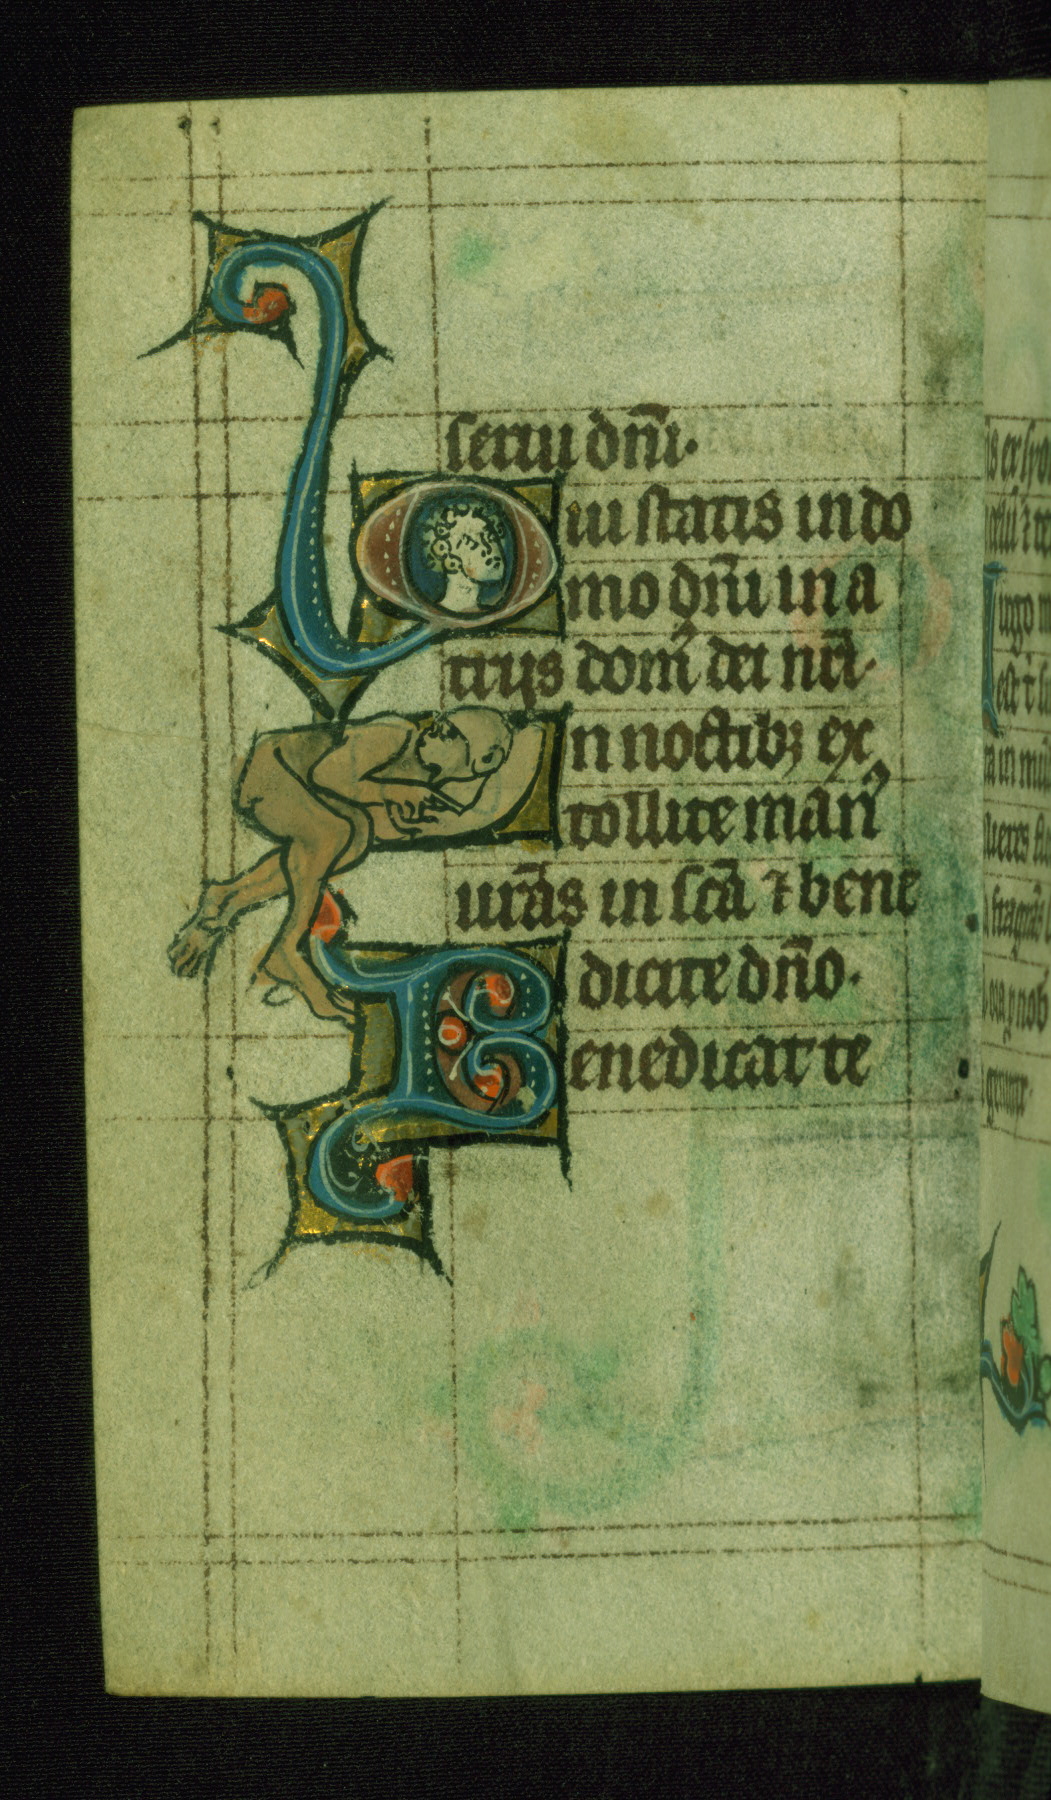 serui dn̄i.
Qui statis in do
mo dn̄i in a
trijs domꝰ dei nr̄i.
In noctibꝫ ex
tollite manꝰ
ur̄as in sc̄a ⁊ bene
dicite dn̄o.
Benedicat te